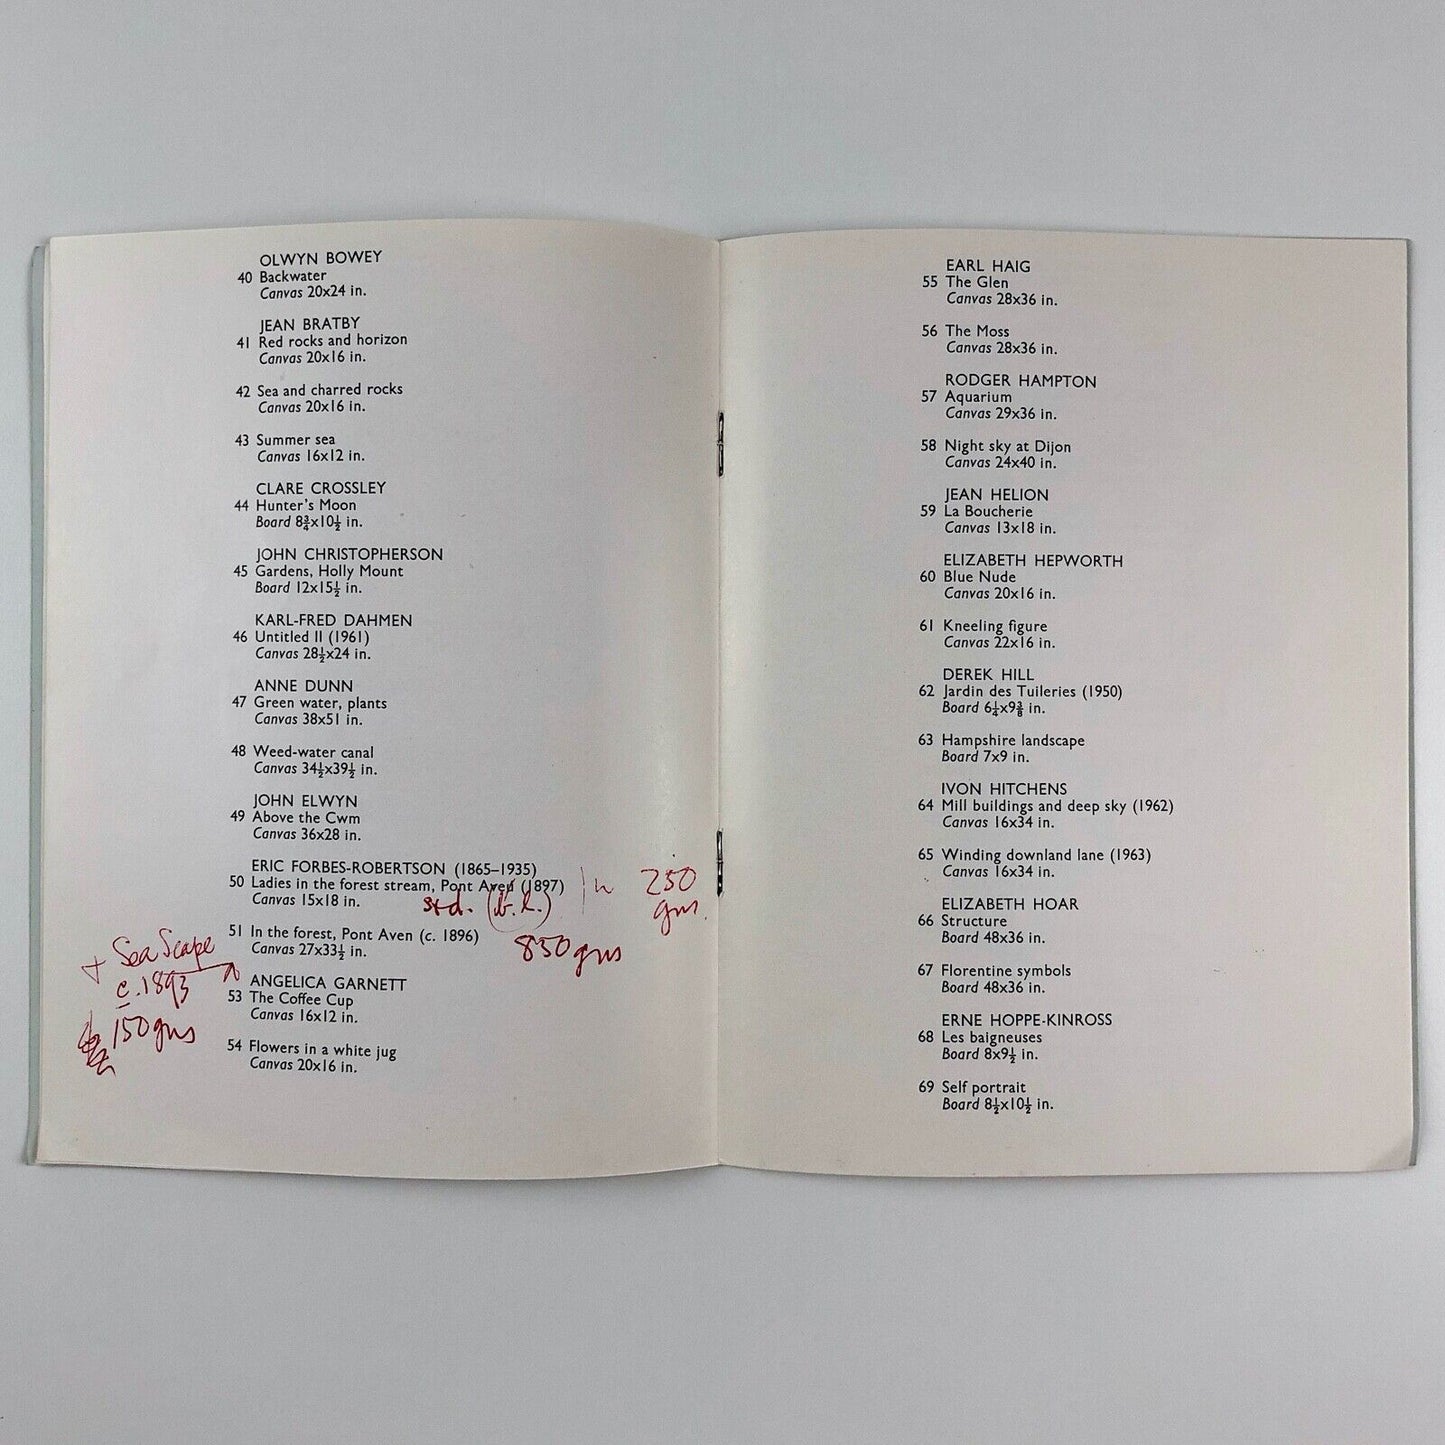 OLWYN BOWEY
40 Backwater
Canvas 20x24 in.
JEAN BRATBY
41 Red rocks and horizon
Canvas 20x16 in.
42 Sea and charred rocks
Canvas 20x16 in.
43 Summer sea
Canvas 16x12 in.
CLARE CROSSLEY
44 Hunter's Moon
Board 8¾x10½ in.
JOHN CHRISTOPHERSON
45 Gardens, Holly Mount
Board 12x15½ in.
KARL-FRED DAHMEN
46 Untitled II (1961)
Canvas 28½x24 in.
ANNE DUNN
47 Green water, plants
Canvas 38x51 in.
48 Weed-water canal
Canvas 34½x39½ in.
JOHN ELWYN
49 Above the Cwm
Canvas 36x28 in.
ERIC FORBES-ROBERTSON (1865–1935)
50 Ladies in the forest stream, Pont Aven (1897)
Canvas 15x18 in.
std. (b.l.)
250
gns.
51 In the forest, Pont Aven (c. 1896)
Canvas 27x33½ in.
850 gns
+ Sea Scape
c. 1893
150 gns
ANGELICA GARNETT
53 The Coffee Cup
Canvas 16x12 in.
54 Flowers in a white jug
Canvas 20x16 in.
EARL HAIG
55 The Glen
Canvas 28x36 in.
56 The Moss
Canvas 28x36 in.
RODGER HAMPTON
57 Aquarium
Canvas 29x36 in.
58 Night sky at Dijon
Canvas 24x40 in.
JEAN HELION
59 La Boucherie
Canvas 13x18 in.
ELIZABETH HEPWORTH
60 Blue Nude
Canvas 20x16 in.
61 Kneeling figure
Canvas 22x16 in.
DEREK HILL
62 Jardin des Tuileries (1950)
Board 6¼x9⅜ in.
63 Hampshire landscape
Board 7x9 in.
IVON HITCHENS
64 Mill buildings and deep sky (1962)
Canvas 16x34 in.
65 Winding downland lane (1963)
Canvas 16x34 in.
ELIZABETH HOAR
66 Structure
Board 48x36 in.
67 Florentine symbols
Board 48x36 in.
ERNE HOPPE-KINROSS
68 Les baigneuses
Board 8x9½ in.
69 Self portrait
Board 8½x10½ in.